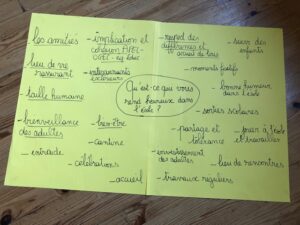 - les amitiés
- lieu de vie
rassurant
- taille humaine
- bienveillance
des adultes
- entraide
- célébrations
- accueil
- implication et
cohésion APEL-
OGEC - eq éduc
- intervenants
extérieurs
- bien-être
- cantine
Qu'est-ce que vous
rend heureux dans
l'école ?
- respect des
différences et
de tous
- moments festifs
- suivi des
enfants
- bonne humeur
dans l'école
- sorties scolaires
- partage et
tolérance
- jouer à l'école
et travailler
- investissement
des adultes
- lieu de rencontres
- travaux réguliers